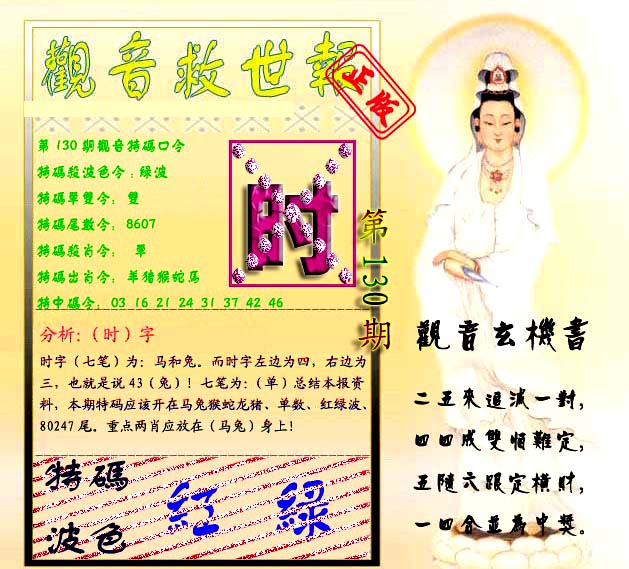 觀音救世報
正版
第130期觀音特碼口令
特碼殺波色令：綠波
特碼單雙令： 雙
特碼尾數令： 8607
特碼殺肖令： 單
特碼出肖令： 羊猪猴蛇馬
特中碼令： 03 16 21 24 31 37 42 46
时
第130期
分析：（时）字
时字（七笔）为：马和兔。而时字左边为四，右边为
三，也就是说43（兔）！七笔为：（单）总结本报资
料，本期特码应该开在马兔猴蛇龙猪、单数、红绿波、
80247尾。重点两肖应放在（马兔）身上！
特碼
波色
紅 綠
觀音玄機書
二五來追減一對，
四四成雙恒難定，
五隨六跟定橫財，
一四合並為中獎。